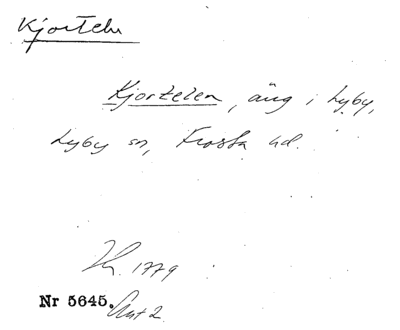 Kjorteln
Kjortelen, äng i Lyby,
Lyby sn, Frosta hd.
1779
Nr 5645. Akt 2